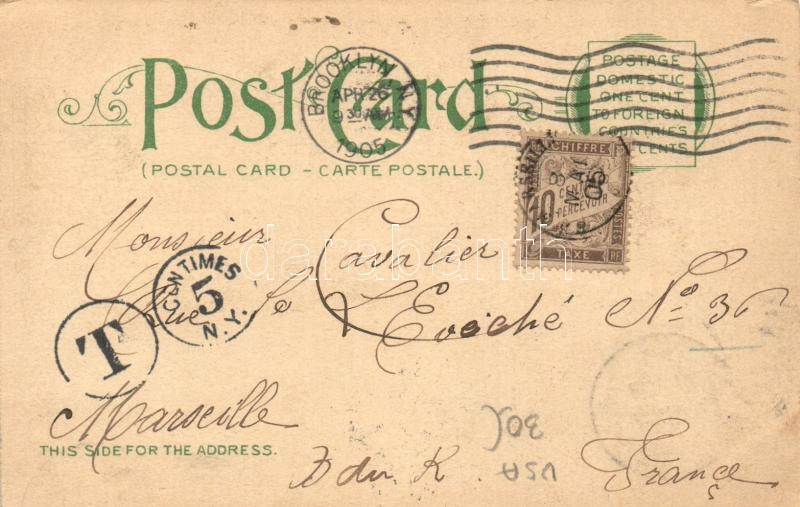 Post Card
(POSTAL CARD – CARTE POSTALE.)
BROOKLYN, N.Y.
APR 26
9 30 AM
1905
POSTAGE
DOMESTIC
ONE CENT
TO FOREIGN
COUNTRIES
CENTS
CHIFFRE
10 CENTIMES
A PERCEVOIR
POSTES
TAXE
RF
8 MAI 05
Monsieur Cavalier
Rue de L'Evêché No 36
CENTIMES
5
N.Y.
T
Marseille
THIS SIDE FOR THE ADDRESS.
B du R.
France
30
USA
darabanth